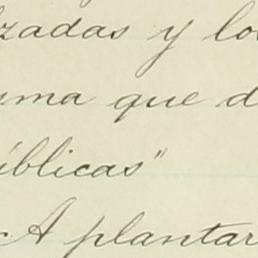 zadas y lo
uma que d
úblicas"
A plantar